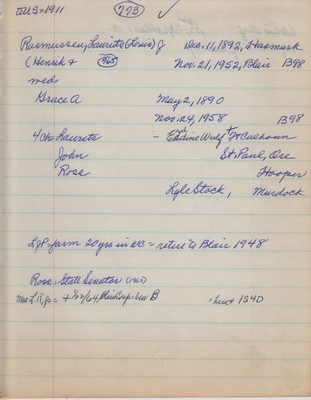 US=1911 773 ✓
Rasmussen, Laurits (Louis) J Dec. 11, 1892, Hasmark
(Henrik & 765 Nov. 21, 1952, Blair B98
med.
Grace A May 2, 1890
Nov. 24, 1958 B98
4 Ch Laurits - Wulf + Calhoun
John St. Paul, Ore
Rose Hooper
Lyle Stock, Murdock
farm 20 yrs in WC = retire to Blair 1948
Rose - State Senator
Mrs L R, Jr = + B 1S4D